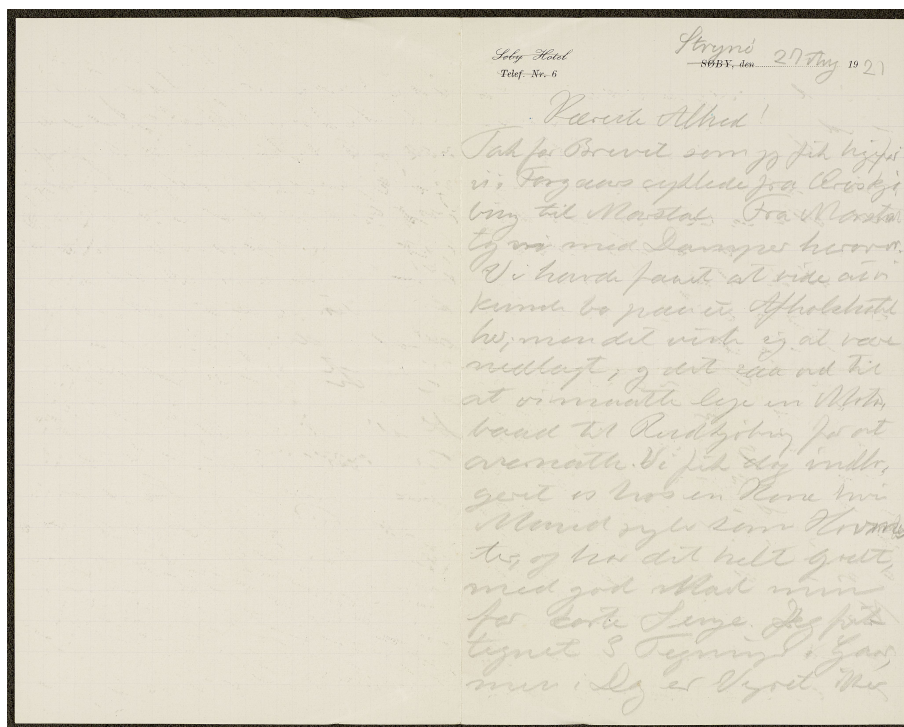 Søby Hotel
Telef. Nr. 6
Strynø
SØBY, den 27 Aug 1921
Kæreste Alhed!
Tak for Brevet som jeg fik lige før
vi i Forgaars cyklede fra Ærøskjø
bing til Marstal. Fra Marstal
tog vi med Damper herover.
Vi havde faaet at vide at vi
kunde bo paa et Afholdshotel
her, men det viste sig at være
nedlagt, og det saa ud til
at vi maatte leje en Motor
baad til Rudkjøbing for at
overnatte. Vi fik dog indlo,
geret os hos en Kone hvis
Mand sejler som Hovme
ter, og har det helt godt,
med god Mad men
for korte Senge. Jeg fik
tegnet 3 Tegninger i Gaar,
men i Dag er Vejret ikke